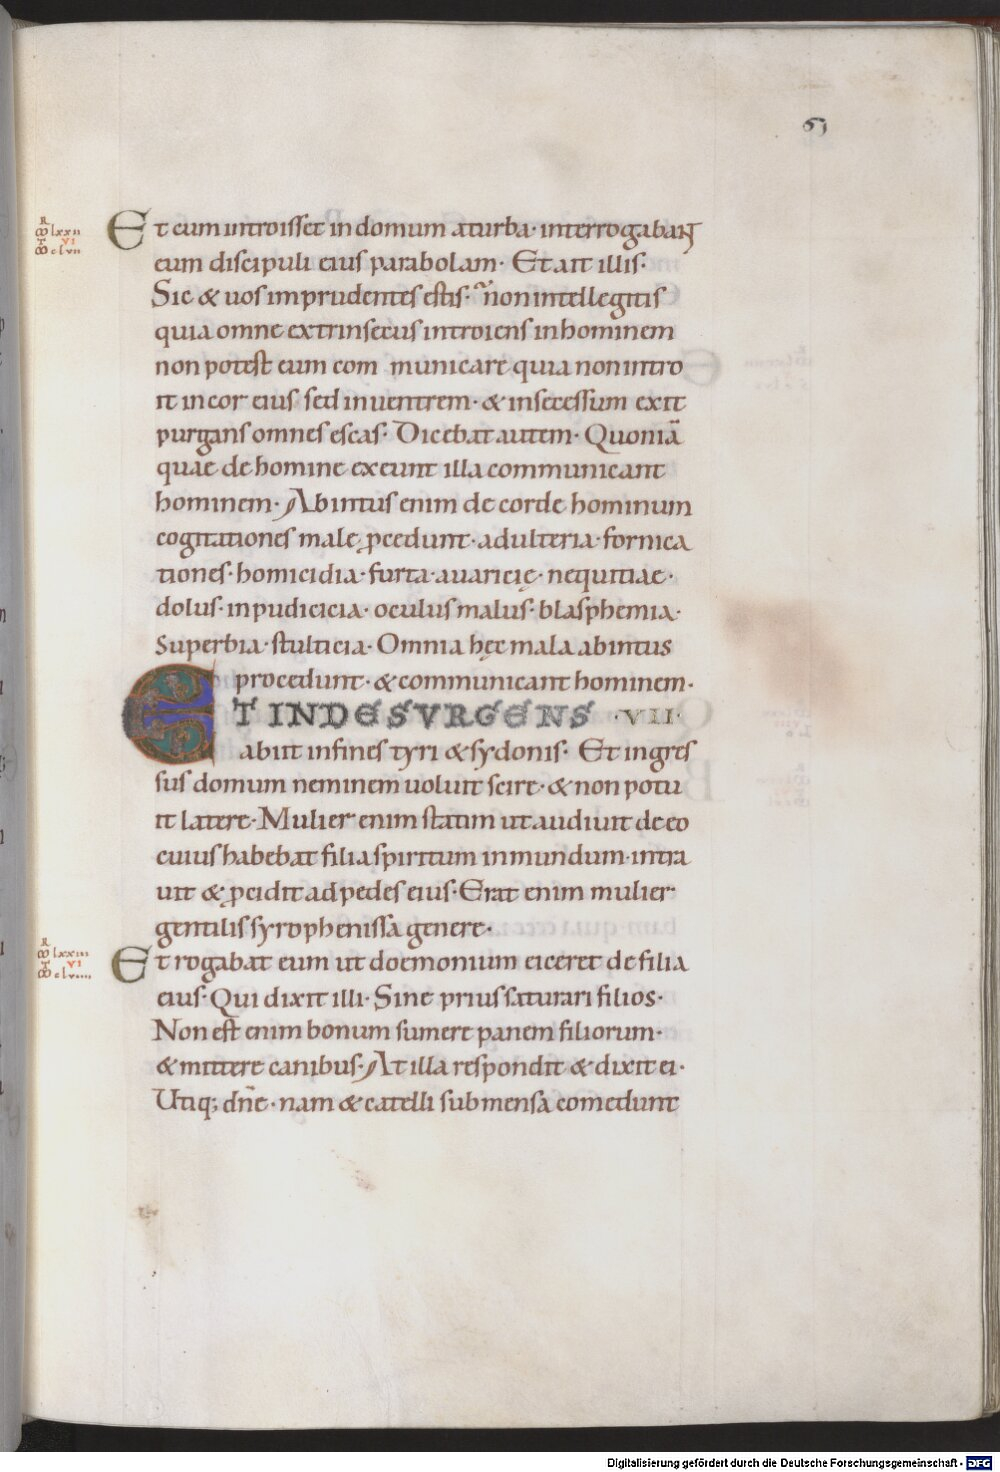 61
Et cum introisset in domum a turba· interrogabant
eum discipuli eius parabolam· Et ait illis·
Sic & uos imprudentes estis· non intellegitis
quia omne extrinsecus introiens in hominem
non potest eum com municare quia non intro
it in cor eius sed in uentrem· & in secessum exit
purgans omnes escas· Dicebat autem· Quoniā
quae de homine exeunt illa communicant
hominem· Ab intus enim de corde hominum
cogitationes malę p̱cedunt· adulteria· fornica
tiones· homicidia· furta· auaricię· nequitiae·
dolus· inpudicicia· oculus malus· blasphemia·
Superbia· stulticia· Omnia hęc mala ab intus
procedunt· & communicant hominem·
ET INDE SVRGENS ·VII·
abiit in fines tyri & sydonis· Et ingres
sus domum neminem uoluit scire· & non potu
it latere· Mulier enim statim ut audiuit de eo
cuius habebat filia spiritum inmundum· intra
uit & p̱cidit ad pedes eius· Erat enim mulier
gentilis syrophenissa genere·
Et rogabat eum ut doemonium eiceret de filia
eius· Qui dixit illi· Sine prius saturari filios·
Non est enim bonum sumere panem filiorum·
& mittere canibus· At illa respondit & dixit ei·
Utiq; dn̄e· nam & catelli sub mensa comedunt
Digitalisierung gefördert durch die Deutsche Forschungsgemeinschaft - DFG